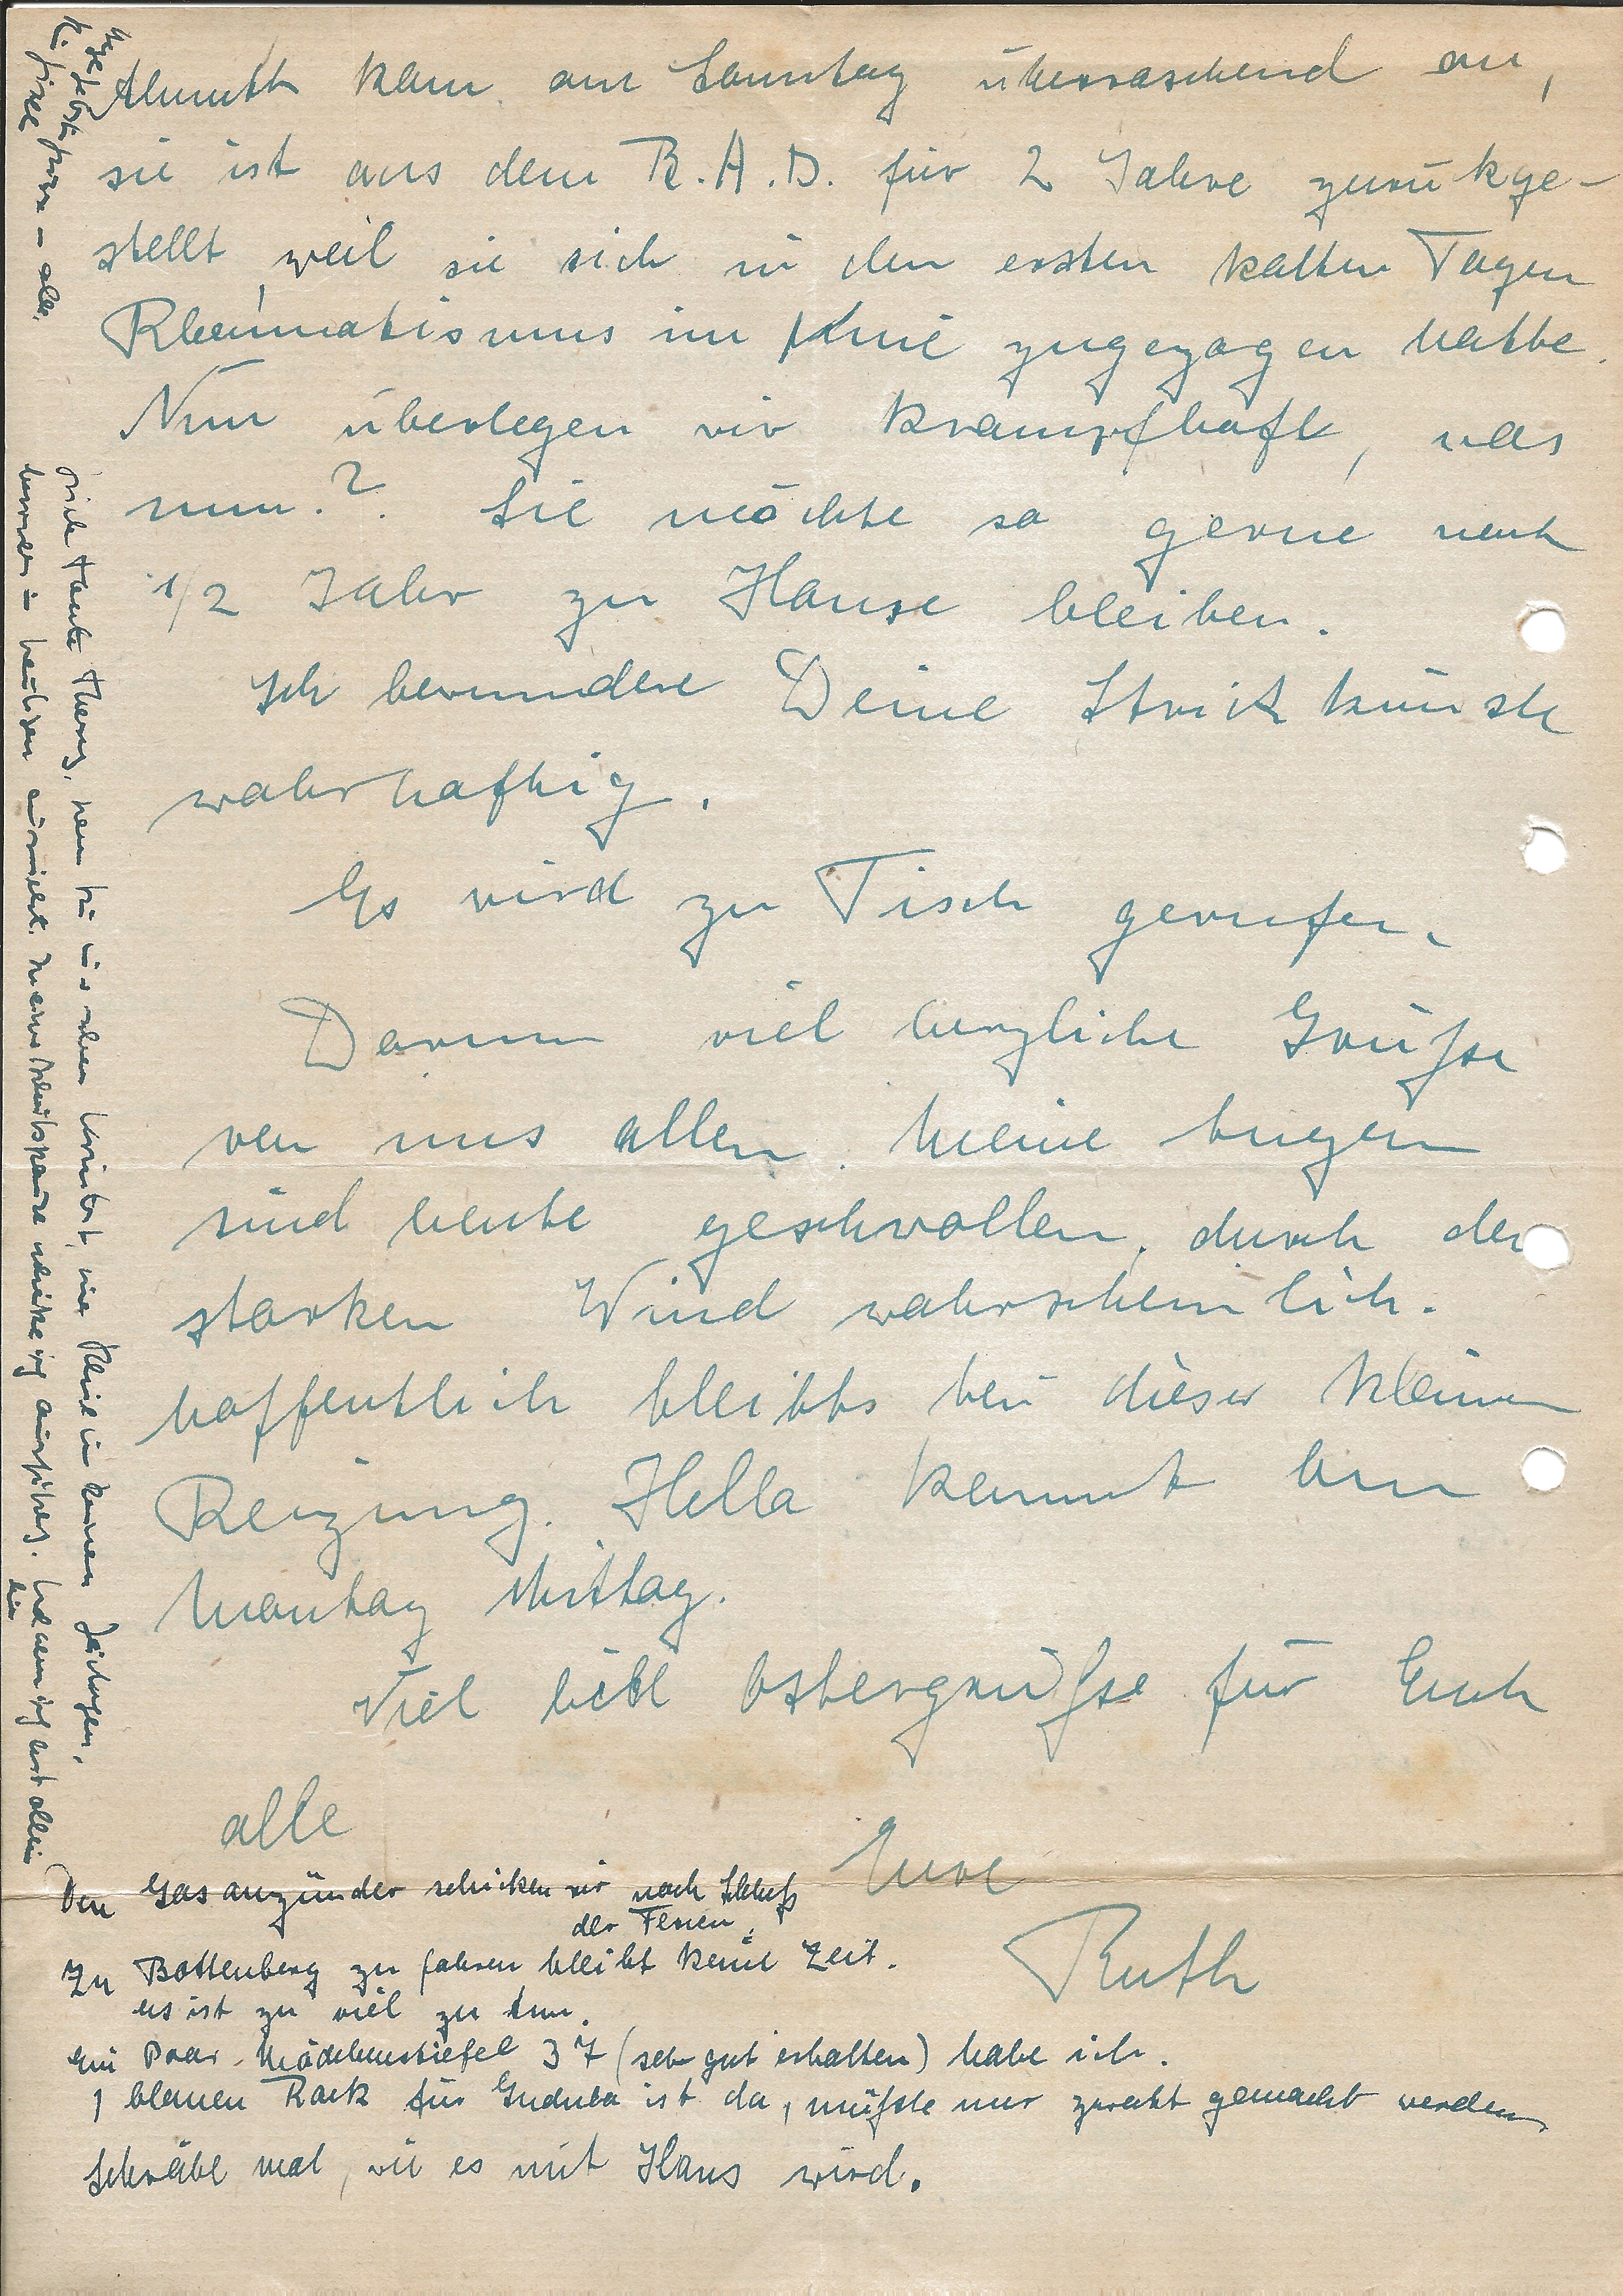 Almuth kam am Sonntag überraschend an,
sie ist aus dem R.A.D. für 2 Jahre zurükge-
stellt, weil sie sich in den ersten kalten Tagen
Rheumatismus im Knie zugezogen hatte.
Nun überlegen wir krampfhaft, was
nun.? Sie möchte so gerne noch
1/2 Jahr zu Hause bleiben.
Ich bewundere Deine Strickkünste
wahrhaftig.
Es wird zu Tisch gerufen.
Darum viel herzliche Grüße
von uns allen. Meine Augen
sind heute geschwollen, durch den
starken Wind wahrscheinlich.
hoffentlich bleibts bei dieser kleinen
Reizung. Hella kommt am
Montag Mittag.
Viel liebe Ostergrüße für Euch
alle
Eure
Ruth
Den Gasanzünder schicken wir nach Schluß
der Ferien.
Zu Bottenberg zu fahren bleibt keine Zeit.
es ist zu viel zu tun.
Ein Paar Mädchenstiefel 37 (sehr gut erhalten) habe ich.
1 blauen Rock für Gudula ist da, müßte nur zurecht gemacht werden.
Schreibe mal, wie es mit Hans wird.